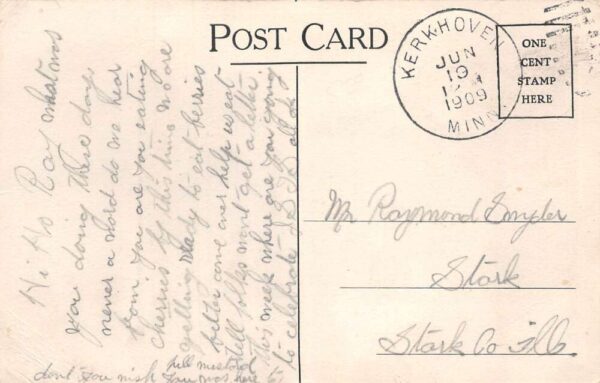 POST CARD
KERKHOVEN
JUN
19
1909
MINN.
ONE
CENT
STAMP
HERE
Hi Ho Ray what was
you doing these days
never a word do we hear
from you are you eating
cherries by this time we are
getting ready to eat berries
better come over help us eat
tell folks wont get a letter
this week where are you going
to celebrate
pull mustard
dont you wish you was here to
Mr Raymond Snyder
Stark
Stark Co Ill